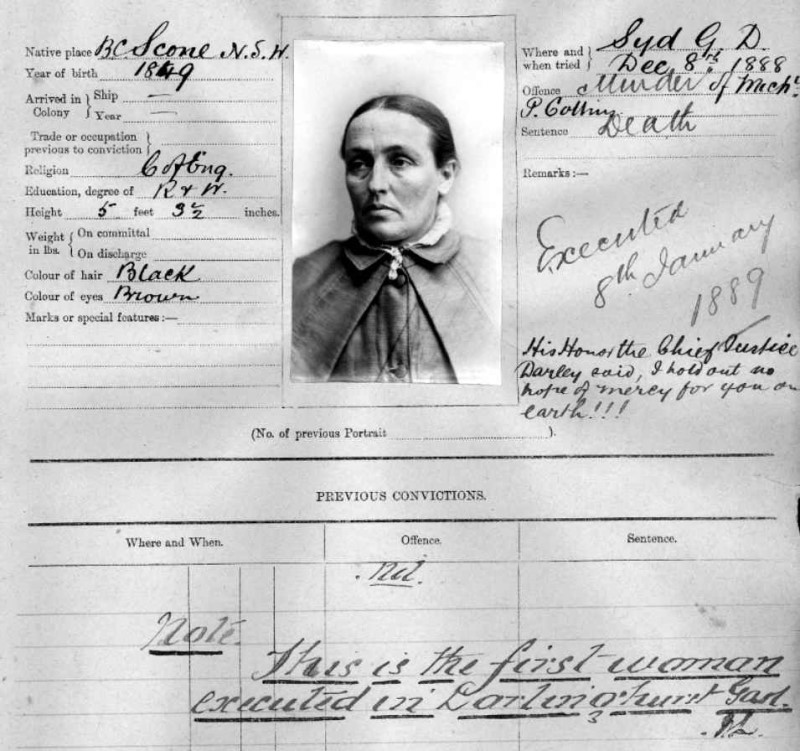 Native place B.C. Scone N.S.W.
Year of birth 1849
Arrived in Colony } Ship —
Year —
Trade or occupation previous to conviction }
Religion C of Eng.
Education, degree of R & W.
Height 5 feet 3½ inches.
Weight in lbs. { On committal
On discharge
Colour of hair Black
Colour of eyes Brown
Marks or special features:—
Where and when tried } Syd G. D.
Dec 8th 1888
Offence Murder of Michl
P. Collins
Sentence Death
Remarks:—
Executed
8th January
1889
His Honor the Chief Justice
Darley said, I hold out no
hope of mercy for you on
earth!!!
(No. of previous Portrait ).
PREVIOUS CONVICTIONS.
Where and When. Offence. Sentence.
Nil.
Note.
This is the first woman
executed in Darlinghurst Gaol.